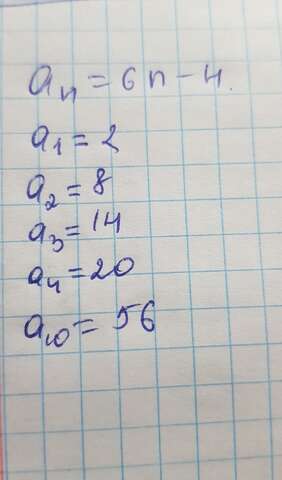 aₙ = 6n - 4.
a₁ = 2
a₂ = 8
a₃ = 14
a₄ = 20
a₁₀ = 56